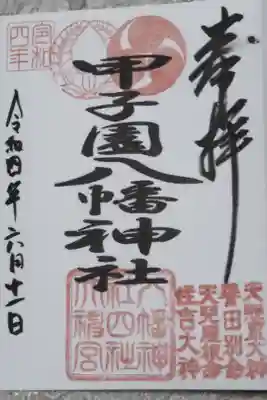 奉拝
天照皇大神
誉田別命
天児屋根命
住吉大神
甲子園八幡神社
令和四年六月十一日